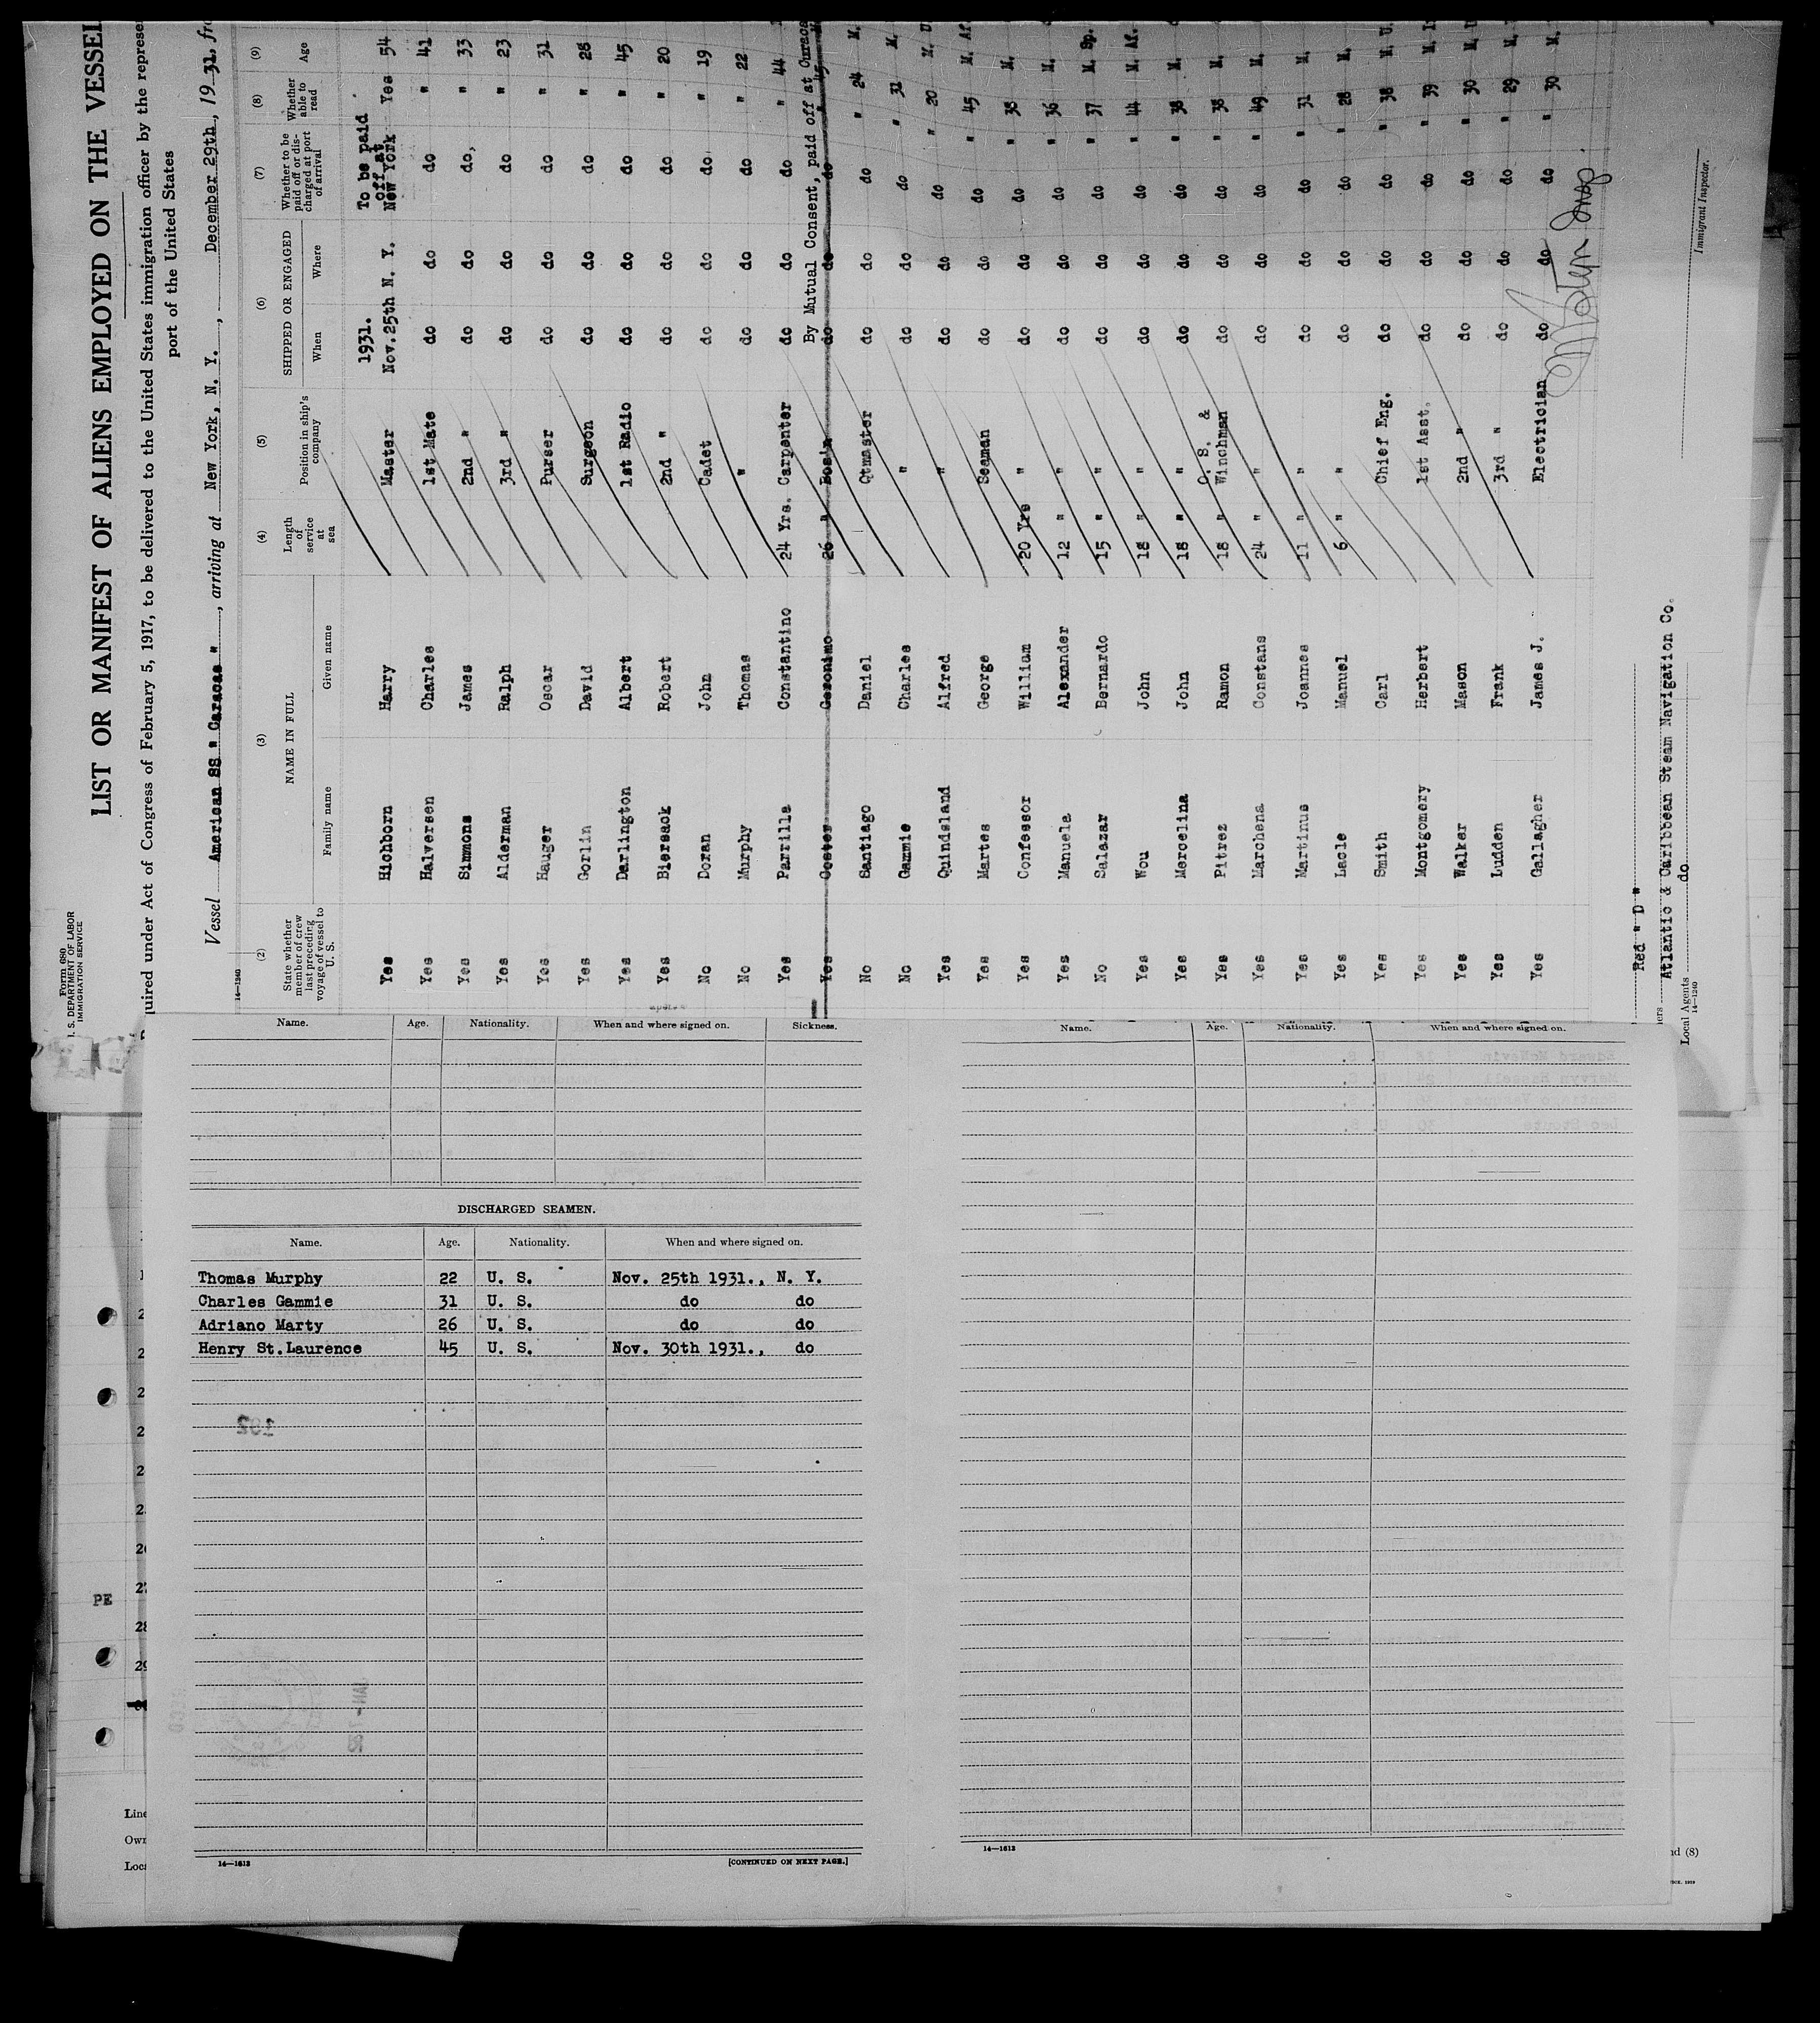 Form 680
S. DEPARTMENT OF LABOR
IMMIGRATION SERVICE
LIST OR MANIFEST OF ALIENS EMPLOYED ON THE VESSEL
quired under Act of Congress of February 5, 1917, to be delivered to the United States immigration officer by the represe
port of the United States
Vessel American SS " Caracas ", arriving at New York, N. Y. , December 29th, 19 31, fr
14—1240
(2) (3) (4) (5) (6) (7) (8) (9)
State whether member of crew last preceding voyage of vessel to U. S. NAME IN FULL Length of service at sea Position in ship's company SHIPPED OR ENGAGED Whether to be paid off or discharged at port of arrival Whether able to read Age
Family name Given name When Where
1931. To be paid off at
Yes Hichborn Harry Master Nov.25th N. Y. New York Yes 54
Yes Halversen Charles 1st Mate do do do " 41
Yes Simmons James 2nd " do do do, " 33
Yes Alderman Ralph 3rd " do do do " 23
Yes Hauger Oscar Purser do do do " 31
Yes Gorlin David Surgeon do do do " 28
Yes Darlington Albert 1st Radio do do do " 45
Yes Biersack Robert 2nd " do do do " 20
No Doran John Cadet do do do " 19
No Murphy Thomas " do do do " 22
Yes Parrilla Constantino 24 Yrs. Carpenter do do do " 44
By Mutual Consent, paid off at Curaca
Yes Coster Geronimo 26 " Bosin do do do " 45
No Santiago Daniel Qtmaster do do do " 24 M.
No Gammie Charles " do do do " 31 M.
Yes Quindsland Alfred " do do do " 20 M. U
Yes Martes George Seaman do do do " 45 M. Af
Yes Confessor William 20 Yrs " do do do " 38 M.
Yes Manuela Alexander 12 " " do do do " 36 M.
No Salazar Bernardo 15 " " do do do " 37 M. Sp.
Yes Wou John 18 " " do do do " 44 M. Af.
Yes Mercelina John 18 " " do do do " 38 M.
Yes Pitrez Ramon 18 " O. S. & Winchman do do do " 38 M.
Yes Marchena Constans 24 " " do do do " 49 M.
Yes Martinus Joannes 11 " " do do do " 31 M.
Yes Lacle Manuel 6 " " do do do " 28 M.
Yes Smith Carl Chief Eng. do do do " 38 M. U.
Yes Montgomery Herbert 1st Asst. do do do " 39 M. I
Yes Walker Mason 2nd " do do do " 30 M. U
Yes Ludden Frank 3rd " do do do " 29 M.
Yes Gallagher James J. Electrician do do do " 30 M.
Immigrant Inspector.
Red " D "
ners Atlantic & Caribbean Steam Navigation Co.
Local Agents do
14—1240
Name. Age. Nationality. When and where signed on. Sickness.
DISCHARGED SEAMEN.
Name. Age. Nationality. When and where signed on.
Thomas Murphy 22 U. S. Nov. 25th 1931., N. Y.
Charles Gammie 31 U. S. do do
Adriano Marty 26 U. S. do do
Henry St.Laurence 45 U. S. Nov. 30th 1931., do
192
14—1613 [CONTINUED ON NEXT PAGE.]
Name. Age. Nationality. When and where signed on.
14—1613
PE
27
28
29
Line
Own
Loca
nd (8)